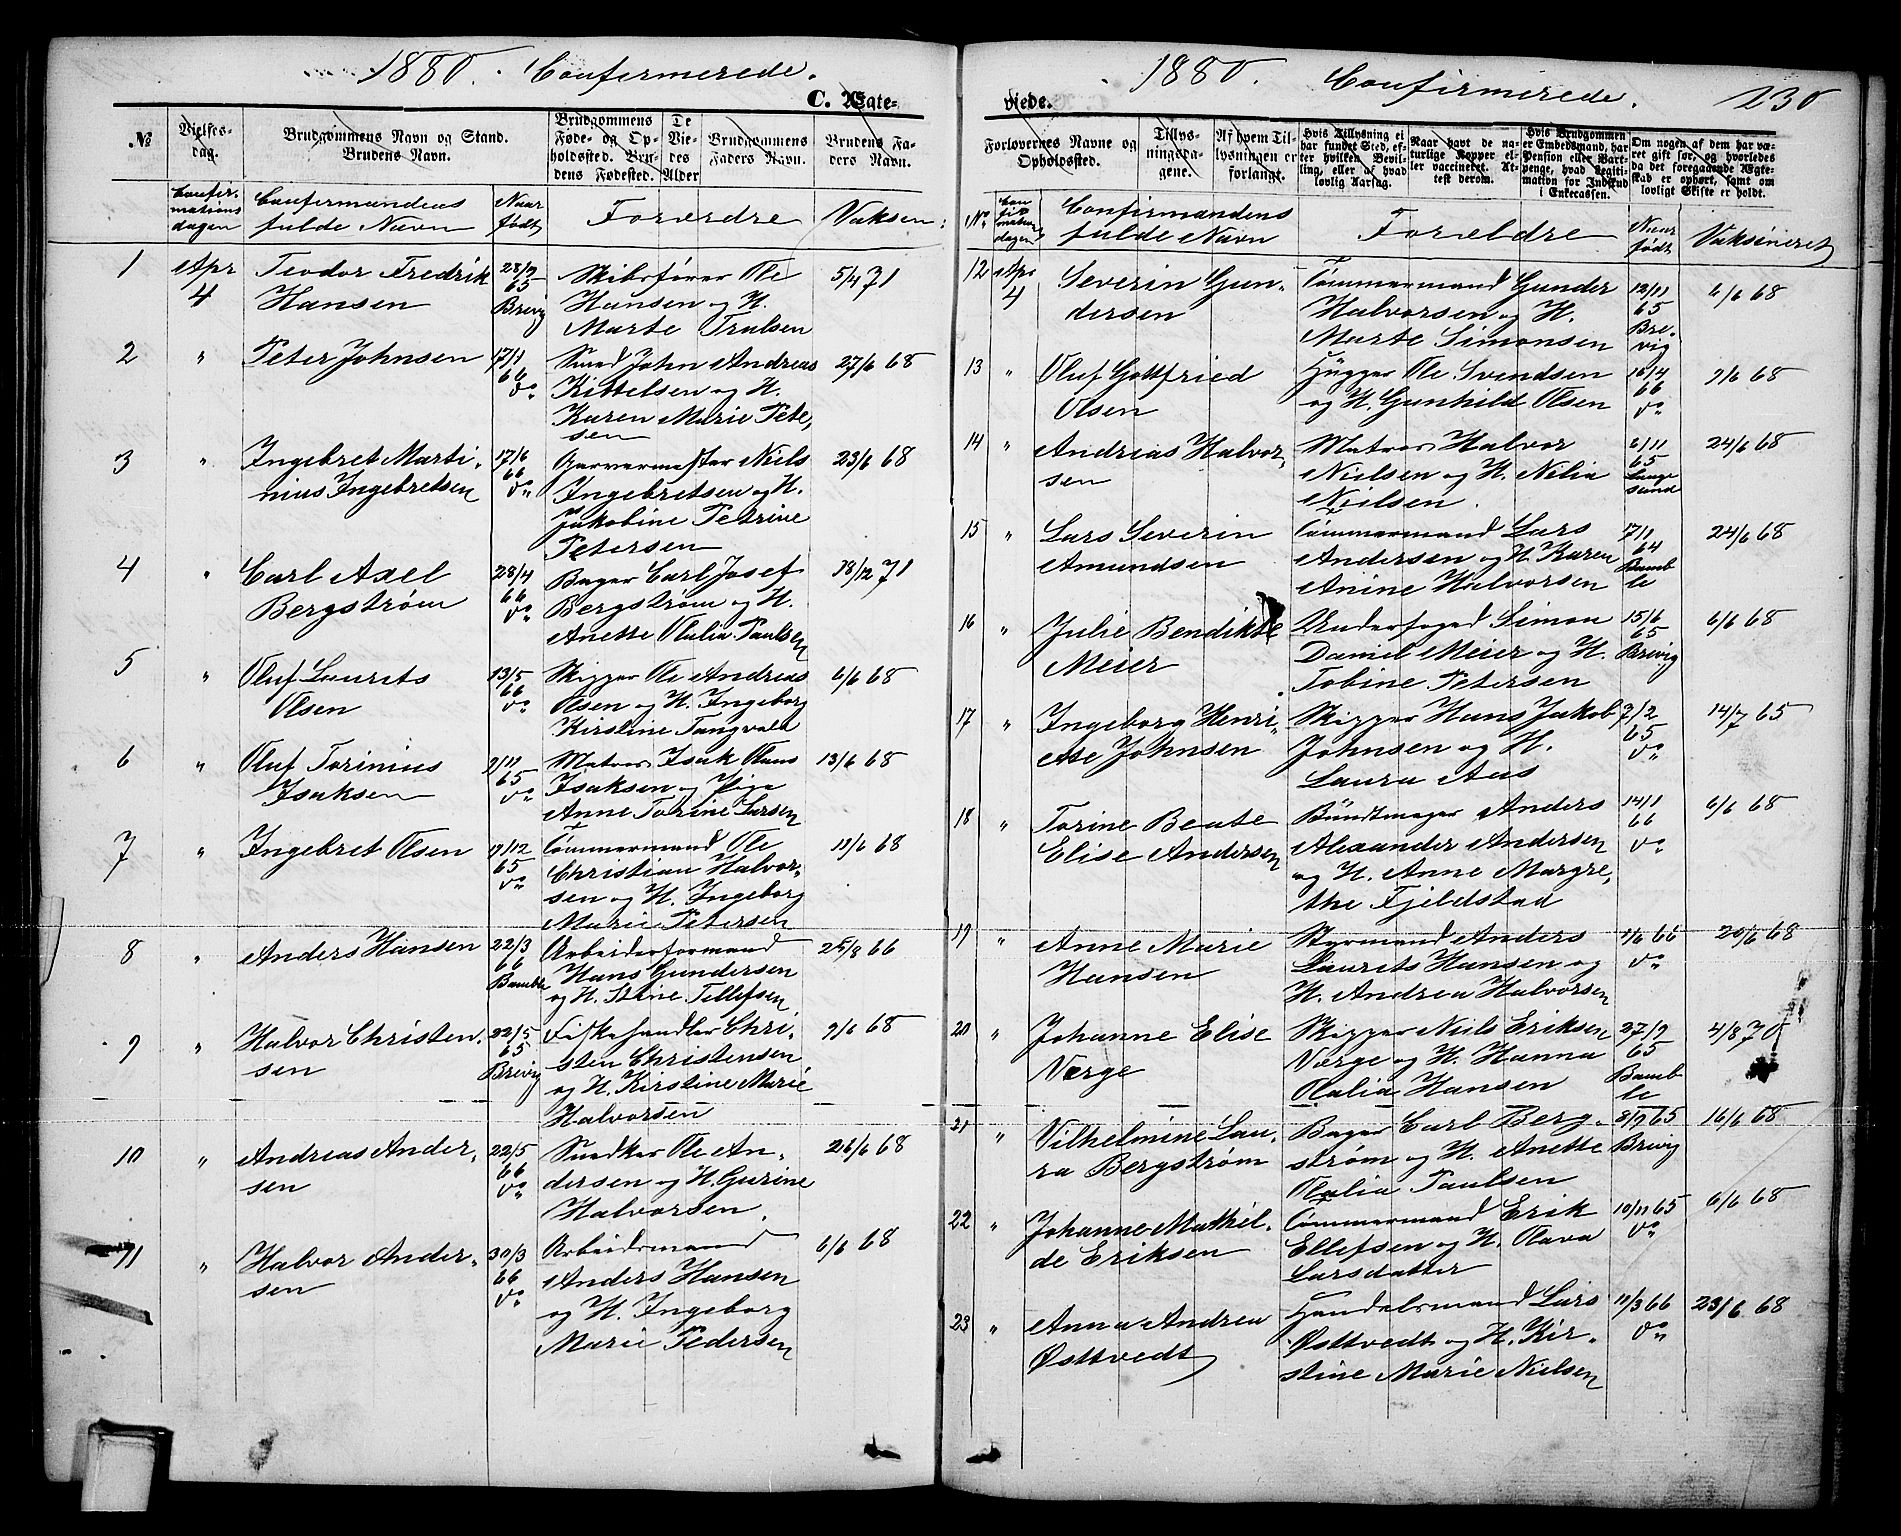 1880. Confirmerede.
C. Ægte-
№
Vielses-
dag.
Brudgommens Navn og Stand.
Brudens Navn.
Brudgommens
Føde- og Op-
holdssted. Bru-
dens Fødested.
De
Vie-
des
Alder
Brudgommens
Faders Navn.
Brudens Fa-
ders Navn.
Confir-
mations
dagen
Confirmandens
fulde Navn
Naar
født
Forældre
Vaksen:
1 Apr 4
Teodor Fredrik
Hansen
28/9
65
Brevig
Skibsfører Ole
Hansen og H.
Marte Trulsen
5/4 71
2 "
Peter Johnsen
17/1
66
do
Smed John Andreas
Kittelsen og H.
Karen Marie Peter-
sen
27/6 68
3 "
Ingebret Marti-
nius Ingebretsen
17/6
66
do
Garvermester Niels
Ingebretsen og H.
Jakobine Petrine
Petersen
23/6 68
4 "
Carl Axel
Bergstrøm
28/4
66
do
Bager Carl Josef
Bergstrøm og H.
Anette Olalia Paulsen
18/12 71
5 "
Oluf Laurits
Olsen
13/5
66
do
Skipper Ole Andreas
Olsen og H. Ingeborg
Kirstine Tangvald
6/6 68
6 "
Oluf Torinius
Isaksen
65
do
Matros Isak Olaus
Isaksen og Pige
Anne Torine Larsen
13/6 68
7 "
Ingebret Olsen
9/12
65
do
Tømmermand Ole
Christian Halvor-
sen og H. Ingeborg
Marie Petersen
8 "
Anders Hansen
22/3
66
Bamble
Arbeidsformand
Hans Gundersen
og H. Stine Tellefsen
25/8 66
9 "
Halvor Christen-
sen
22/5
65
Brevig
Fiskehandler Chri-
sten Christensen
og H. Kirstine Marie
Halvorsen
9/6 68
10 "
Andreas Ander-
sen
22/5
66
do
Snedker Ole An-
dersen og H. Gurine
Halvorsen.
26/6 68
11 "
Halvor Ander-
sen
30/3
66
do
Arbeidsmand
Anders Hansen
og H. Ingeborg
Marie Pedersen
6/6 68
1880. Confirmerede. 230
viede.
Forlovernes Navne og
Opholdssted.
Tillys-
ningsda-
gene.
Af hvem Til-
lysningen er
forlangt.
Hvis Tillysning ei
har fundet Sted, ef-
ter hvilken Bevil-
ling, eller af hvad
lovlig Aarsag.
Naar havt de na-
turlige Kopper el-
ler vaccineret. At-
test derom.
Hvis Brudgommen
er Embedsmand, har
Pension eller Vart-
penge, hvad Legiti-
mation for Indskud
i Enkecassen.
Om nogen af dem har væ-
ret gift før, og hvorledes
da det foregaaende Ægte-
skab er ophørt, samt om
lovligt Skifte er holdt.
No
Con
fir
mations
dagen
Confirmandens
fulde Navn
Forældre
Naar
født
Vaksineret
12 Apr 4
Severin Gun-
dersen
Tømmermand Gunder
Halvorsen og H.
Marte Simonsen
12/11
65
Bre-
vig
6/6 68
13 "
Oluf Gottfried
Olsen
Hugger Ole Svendsen
og H. Gunhild Olsen
16/4
66
do
9/6 68
14 "
Andreas Halvor-
sen
Matros Halvor
Nielsen og H. Nilia
Nielsen.
6/11
65
Lange
sund
24/6 68
15 "
Lars Severin
Amundsen
Tømmermand Lars
Andersen og H. Karen
Anine Halvorsen
17/1
64
Bamb
le
24/6 68
16 "
Julie Bendikte
Meier
Underfoged Simon
Daniel Meier og H.
Tobine Petersen
15/6
65
Brevig
6/6 68
17 "
Ingeborg Henri-
ette Johnsen
Skipper Hans Jakob
Johnsen og H.
Laura Aas
7/2
65
do
14/7 65
18 "
Torine Beate
Elise Andersen
Buntmager Anders
Alexander Andersen
og H. Anne Margre-
the Fjeldstad
14/1
66
do
6/6 68
19 "
Anne Marie
Hansen
Styrmand Anders
Laurits Hansen og
H. Andrea Halvorsen
1/6 66
do
20/6 68
20 "
Johanne Elise
Verge
Skipper Niels Eriksen
Værge og H. Hanna
Olalia Hansen
27/9
65
Bamb
le
4/8 70
21 "
Vilhelmine Lau-
ra Bergstrøm
Bager Carl Berg-
strøm og H. Anette
Olalia Paulsen
8/9 65
Brevig
16/6 68
22 "
Johanne Mathil-
de Eriksen
Tømmermand Erik
Ellefsen og H. Olava
Larsdatter
10/11 65
do
6/6 68
23 "
Anna Andrea
Østtvedt
Handelsmand Lars
Østtvedt og H. Kir-
stine Marie Nielsen
11/3 66
do
23/6 68